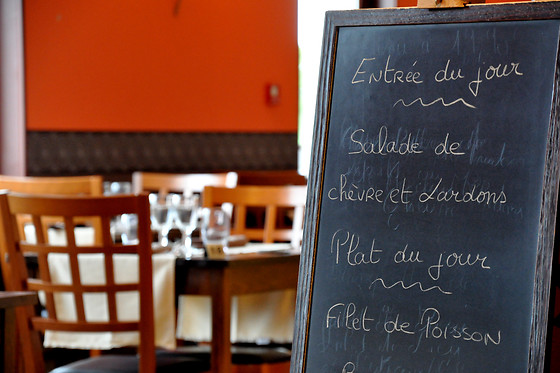 Entrée du jour
Salade de
chèvre et Lardons
Plat du jour
Filet de Poisson